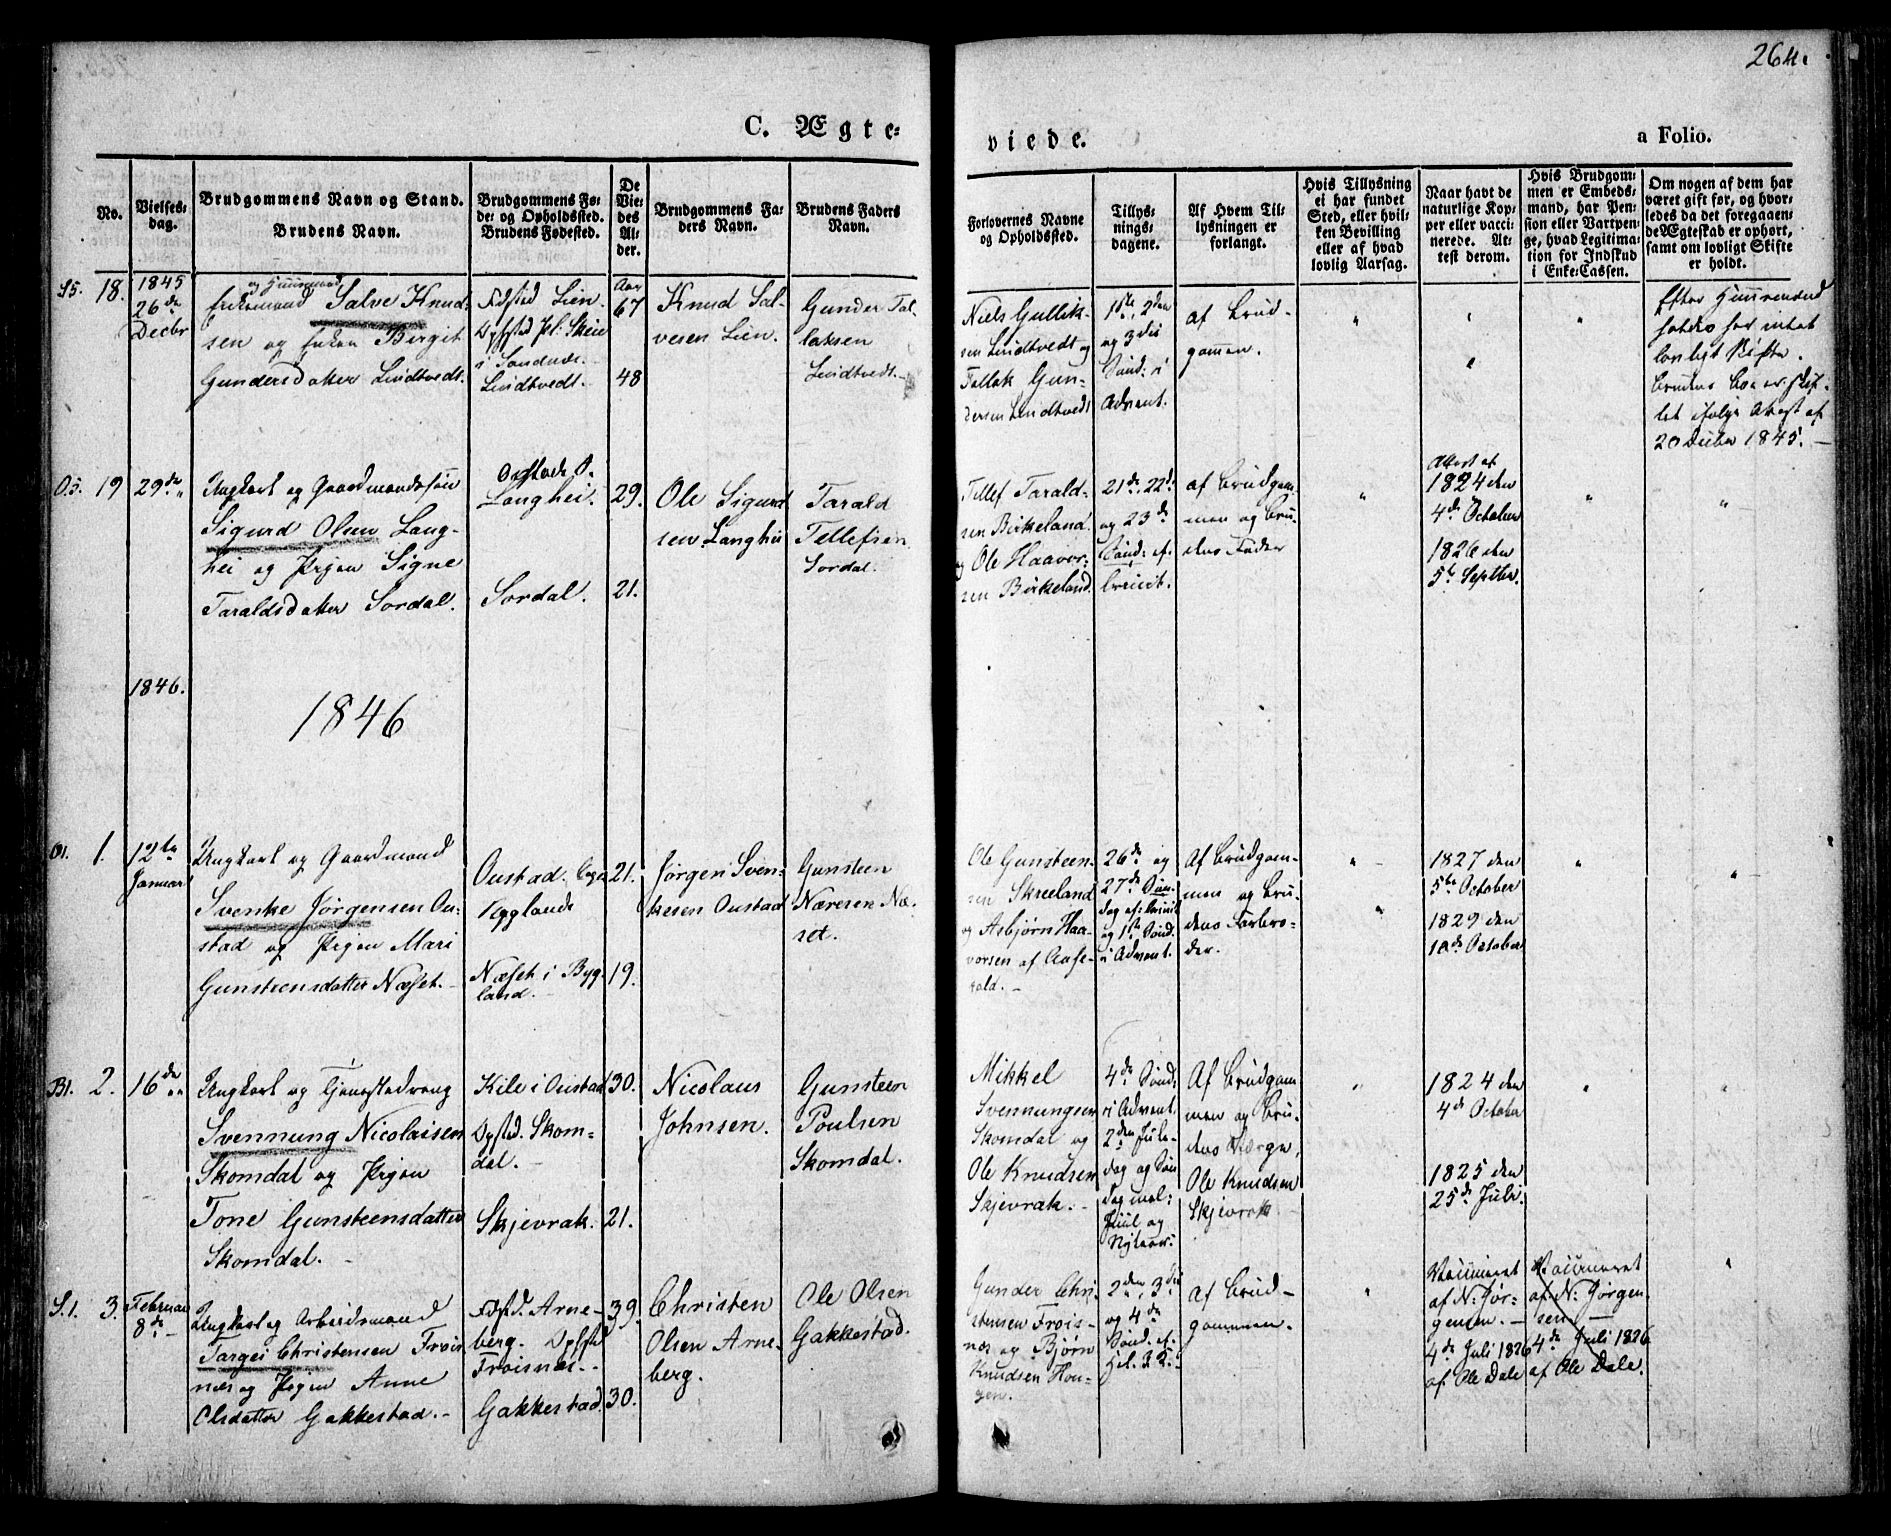 264.
C. Ægte-
viede.
a Folio.
No.
Vielses-
dag.
Brudgommens Navn og Stand.
Brudens Navn.
Brudgommens Fø-
de- og Opholdssted.
Brudens Fødested.
De
Vie-
des
Al-
der.
Brudgommens Fa-
ders Navn.
Brudens Faders
Navn.
Forlovernes Navne
og Opholdssted.
Tillys-
nings-
dagene.
Af Hvem Til-
lysningen er
forlangt.
Hvis Tillysning
ei har fundet
Sted, eller hvil-
ken Bevilling
eller af hvad
lovlig Aarsag.
Naar havt de
naturlige Kop-
per eller vacci-
nerede. At-
test derom.
Hvis Brudgom-
men er Embeds-
mand, har Pen-
sion eller Vartpen-
ge, hvad Legitima-
tion for Indskud
i Enke-Cassen.
Om nogen af dem har
været gift før, og hvor-
ledes da det foregaaen-
de Ægteskab er ophørt,
samt om lovligt Skifte
er holdt.
S5. 18.
1845
26de
Decbr
og Huusmand
Enkemand Salve Knud-
sen og Enken Birgit
Gundersdatter Lindtvedt.
Fødsted Lien.
Opsted Pl. Skeie
i Sandnæs.
Lindtvedt.
Aar
67
48
Knud Sal-
vesen Lien.
Gunder Tal-
laksen
Lindtvedt.
Niels Gullik-
sen Lindtvedt og
Tallak Gun-
dersen Lindtvedt
1ste, 2den
og 3die
Sønd: i
Advent.
af Brud-
gommen.
Efter Huusmand
holdes for intet
lovligt Skifte.
Brudens Boe er skif-
tet ifølge Attest af
20 Decbr 1845.
O5. 19
29de
Ungkarl og Gaardmandssøn
Sigurd Olsen Lang-
hei og Pigen Signe
Taraldsdatter Sordal.
Langhei.
Sordal.
29.
21.
Ole Sigurd
sen Langhei
Tarald
Tellefsen
Sordal.
Tellef Tarald-
sen Birkeland
og Ole Haavor-
sen Birkeland.
21de, 22de
og 23de
Sønd: ef:
Trinit.
af Brudgom-
men og Bru-
dens Fader
Attest af
1824 den
4de October
1826 den
5te Septbr.
1846.
1846
O1. 1.
12te
Januar
Ungkarl og Gaardmand
Svenke Jørgensen Ou-
stad og Pigen Mari
Gunsteensdatter Næset.
Oustad.
Bygland
Næset i Byg-
land.
21.
19.
Jørgen Sven-
kesen Oustad
Gunsteen
Næresen Næ-
set.
Ole Gunsteen-
sen Skreeland
og Asbjørn Haa-
vorsen af Aase-
rald.
26de og
27de Søn-
dag ef: Trinit
og 1ste Sønd.
i Advent.
Af Brudgom-
men og Bru-
dens Farbro-
der.
1827 den
5te October
1829 den
10de October
B1. 2.
16de
Ungkarl og Tjenestedreng
Svennung Nicolaisen
Skomdal og Pigen
Tone Gunsteensdatter
Skomdal.
Kile i Oustad
Opsted. Skom-
dal.
Skjevrak.
30.
21.
Nicolaus
Johnsen.
Gunsteen
Poulsen
Skomdal.
Mikkel
Svennungsen
Skomdal og
Ole Knudsen
Skjevrak.
4de Sønd:
i Advent,
2den Jule-
dag og Søn
dag mel:
Juul og
Nytaar:
Af Brudgom-
men og Bru-
dens Værge,
Ole Knudsen
Skjevrak
1824 den
4de October
1825 den
25de Juli.
S.1. 3.
Februar
8de
Ungkarl og Arbeidsmand
Targei Christensen Frøis
næs og Pigen Anne
Olsdatter Gakkestad.
Fødsted. Arne-
berg. Opsted
Frøisnæs.
Gakkestad.
39.
30.
Christen
Olsen Arne-
berg.
Ole Olsen
Gakkestad.
Gunder Chri-
stensen Frøis-
næs og Bjørn
Knudsen Hou-
gen.
2den, 3die
og 4de
Sønd. ef.
Hel. 3 K.
af Brud-
gommen.
Vaccineret
af N: Jør-
gensen.
4de Juli 1826
af Ole Dale
Vaccineret
af N: Jørgen
sen
4de Juli 1826
af Ole Dale.